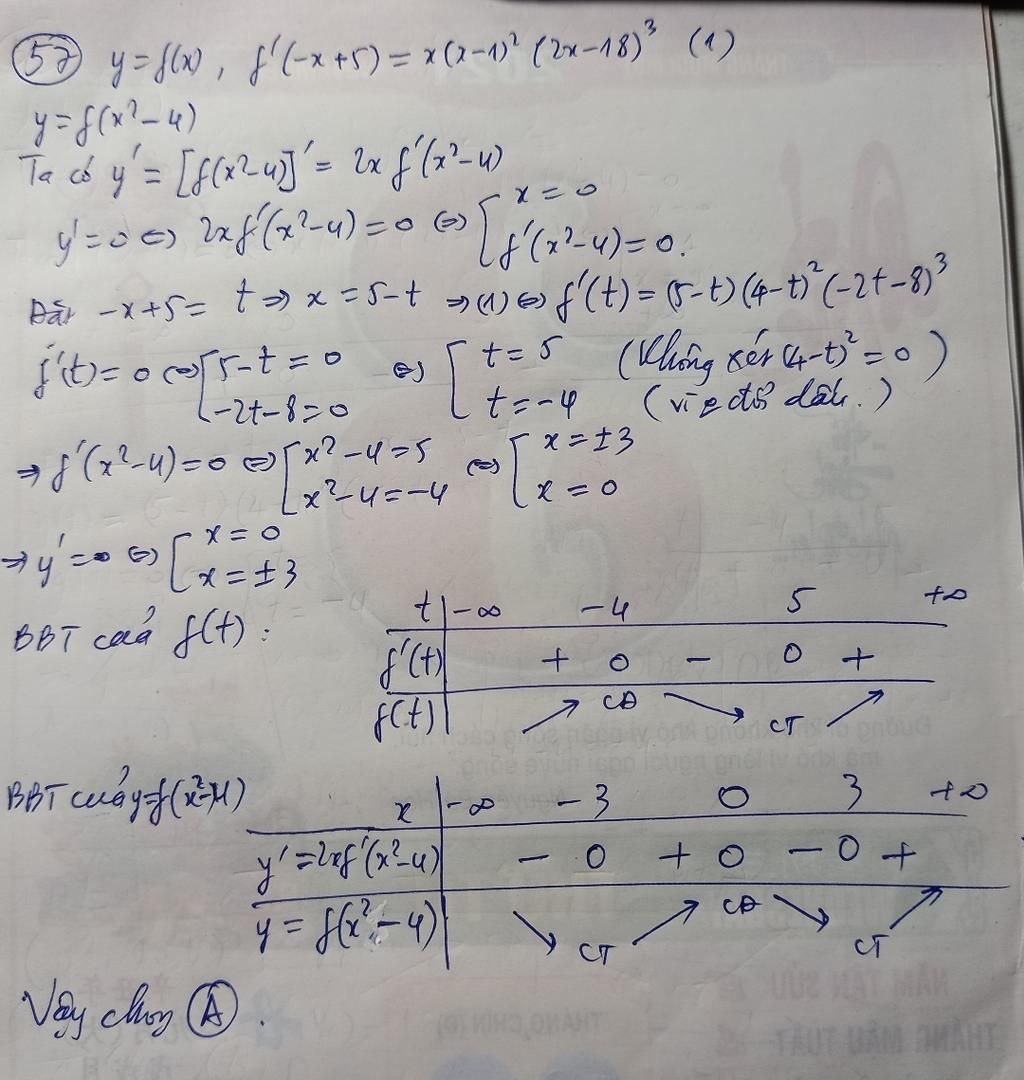 57 y = f(x), f'(-x+5) = x(x-1)² (2x-18)³ (1)
y = f(x²-4)
Ta có y' = [f(x²-4)]' = 2x f'(x²-4)
y' = 0 ⇔ 2x f'(x²-4) = 0 ⇔ [ x = 0
f'(x²-4) = 0.
Đặt -x+5 = t ⇒ x = 5-t ⇒ (1) ⇔ f'(t) = (5-t)(4-t)² (-2t-8)³
f'(t) = 0 ⇔ [ 5-t = 0 ⇔ [ t = 5 (Không xét (4-t)² = 0)
-2t-8 = 0 t = -4 (vì đổi dấu.)
⇒ f'(x²-4) = 0 ⇔ [ x²-4 = 5 ⇔ [ x = ±3
x²-4 = -4 x = 0
⇒ y' = 0 ⇔ [ x = 0
x = ±3
BBT của f(t):
t -∞ -4 5 +∞
f'(t) + 0 - 0 +
f(t) ↗ CĐ ↘ CT ↗
BBT của y=f(x²-4)
x -∞ -3 0 3 +∞
y' = 2xf'(x²-4) - 0 + 0 - 0 +
y = f(x²-4) ↘ CT ↗ CĐ ↘ CT ↗
Vậy chọn A.